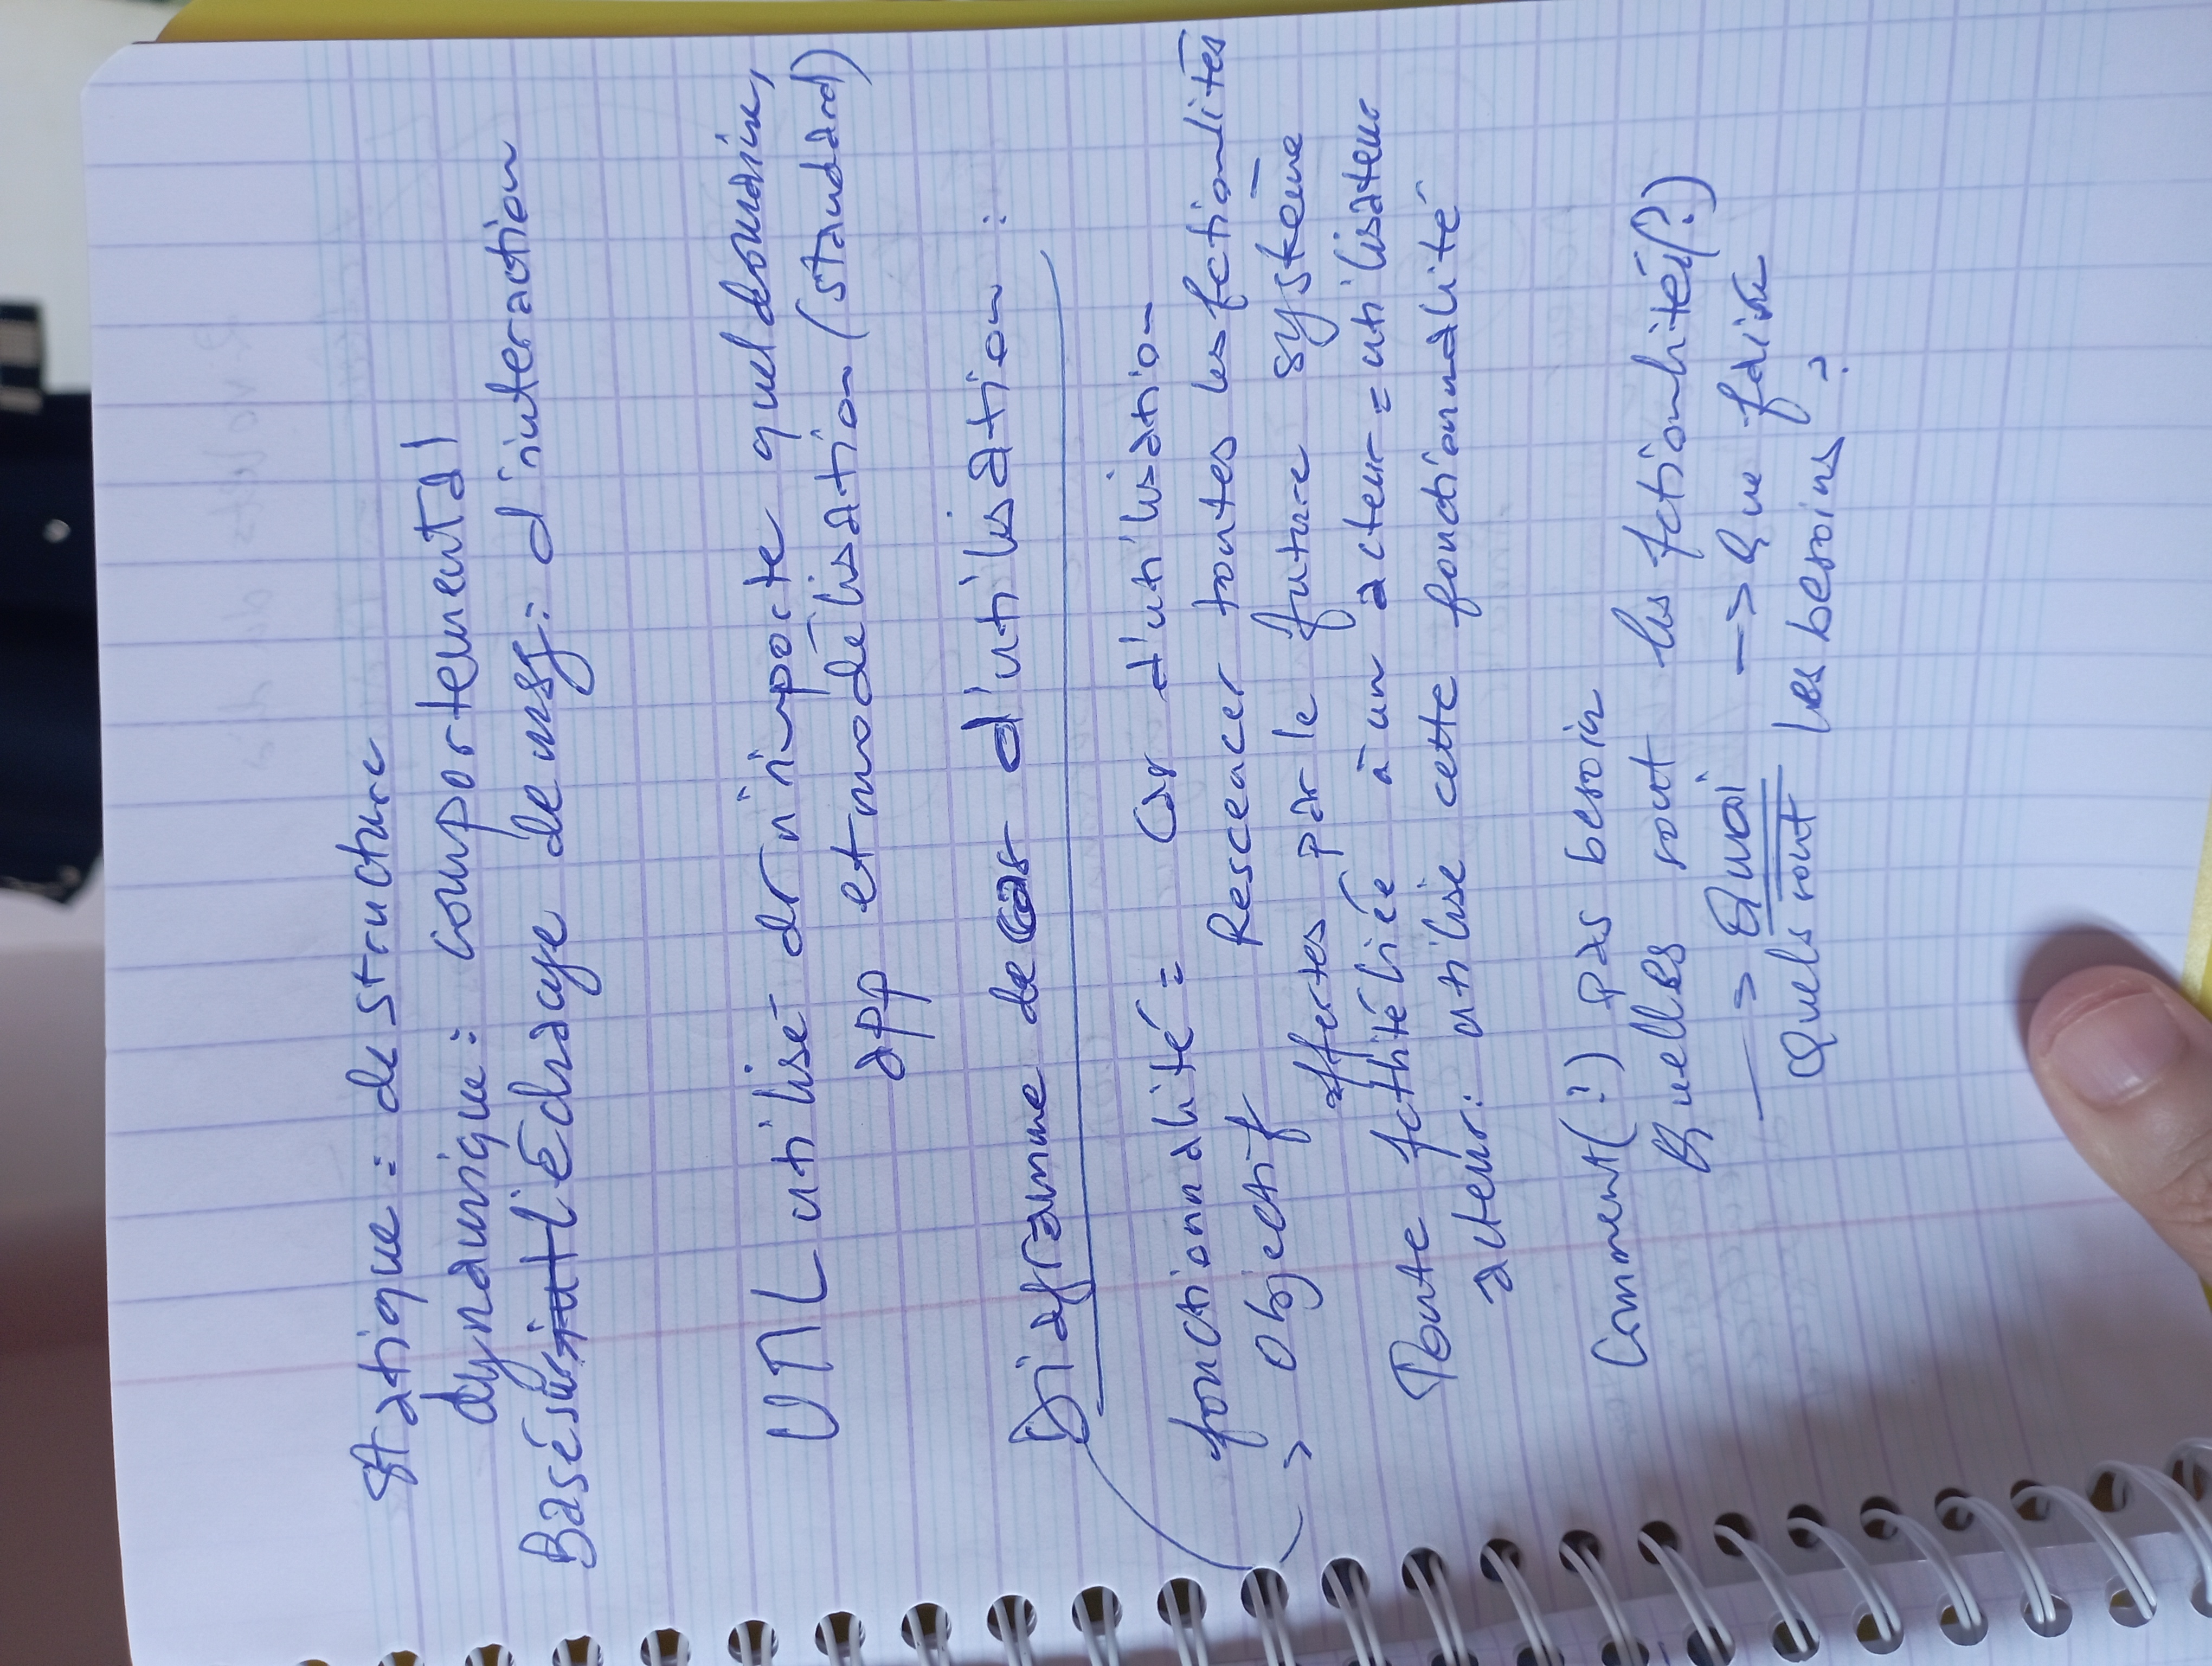 statique : de structure
dynamique : comportemental
Basé sur l'échange de msg : d'interaction
UML utilisé ds n'importe quel domaine,
app et modélisation (standard)
Diagramme de cas d'utilisation :
fonctionnalité = Cas d'utilisation
> Objectif Resceacer toutes les fctionlités
offertes par le future système
Toute fctlité liée à un acteur = utilisateur
acteur : utilise cette fonctionnalité
Comment (?) pas besoin
Quelles sont les fctionlités (?)
—> Quoi —> Que faire
Quels sont les besoins ?